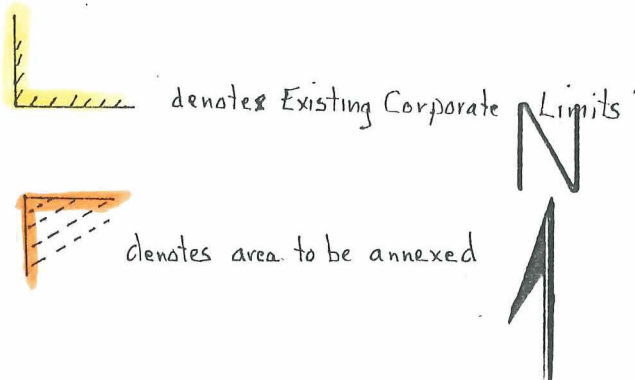 denotes Existing Corporate Limits
N
denotes area to be annexed